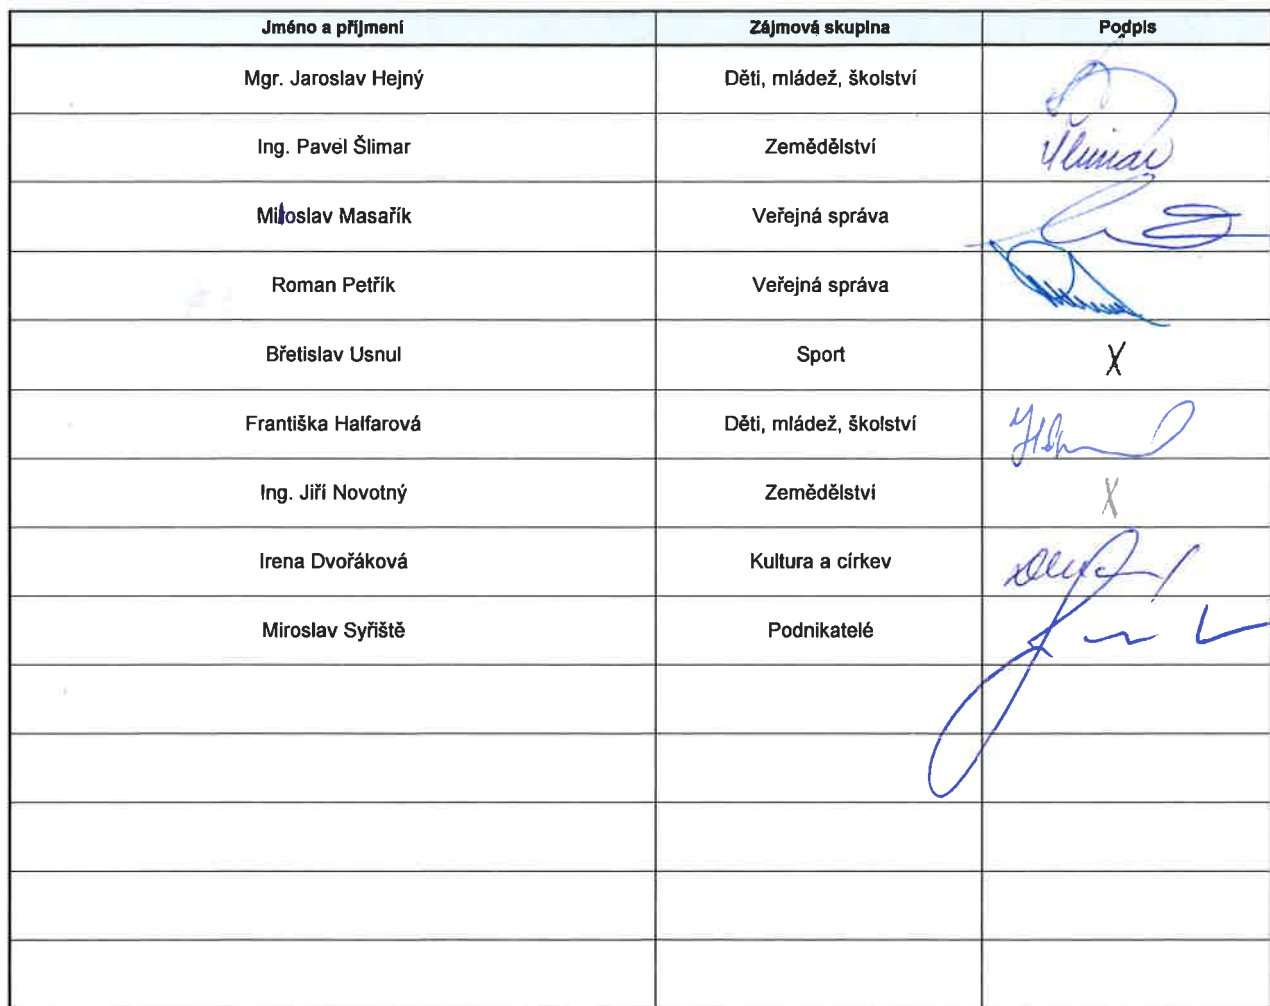 Jméno a příjmení Zájmová skupina Podpis
Mgr. Jaroslav Hejný Děti, mládež, školství
Ing. Pavel Šlimar Zemědělství Šlimar
Miloslav Masařík Veřejná správa
Roman Petřík Veřejná správa
Břetislav Usnul Sport X
Františka Halfarová Děti, mládež, školství
Ing. Jiří Novotný Zemědělství X
Irena Dvořáková Kultura a církev
Miroslav Syřiště Podnikatelé